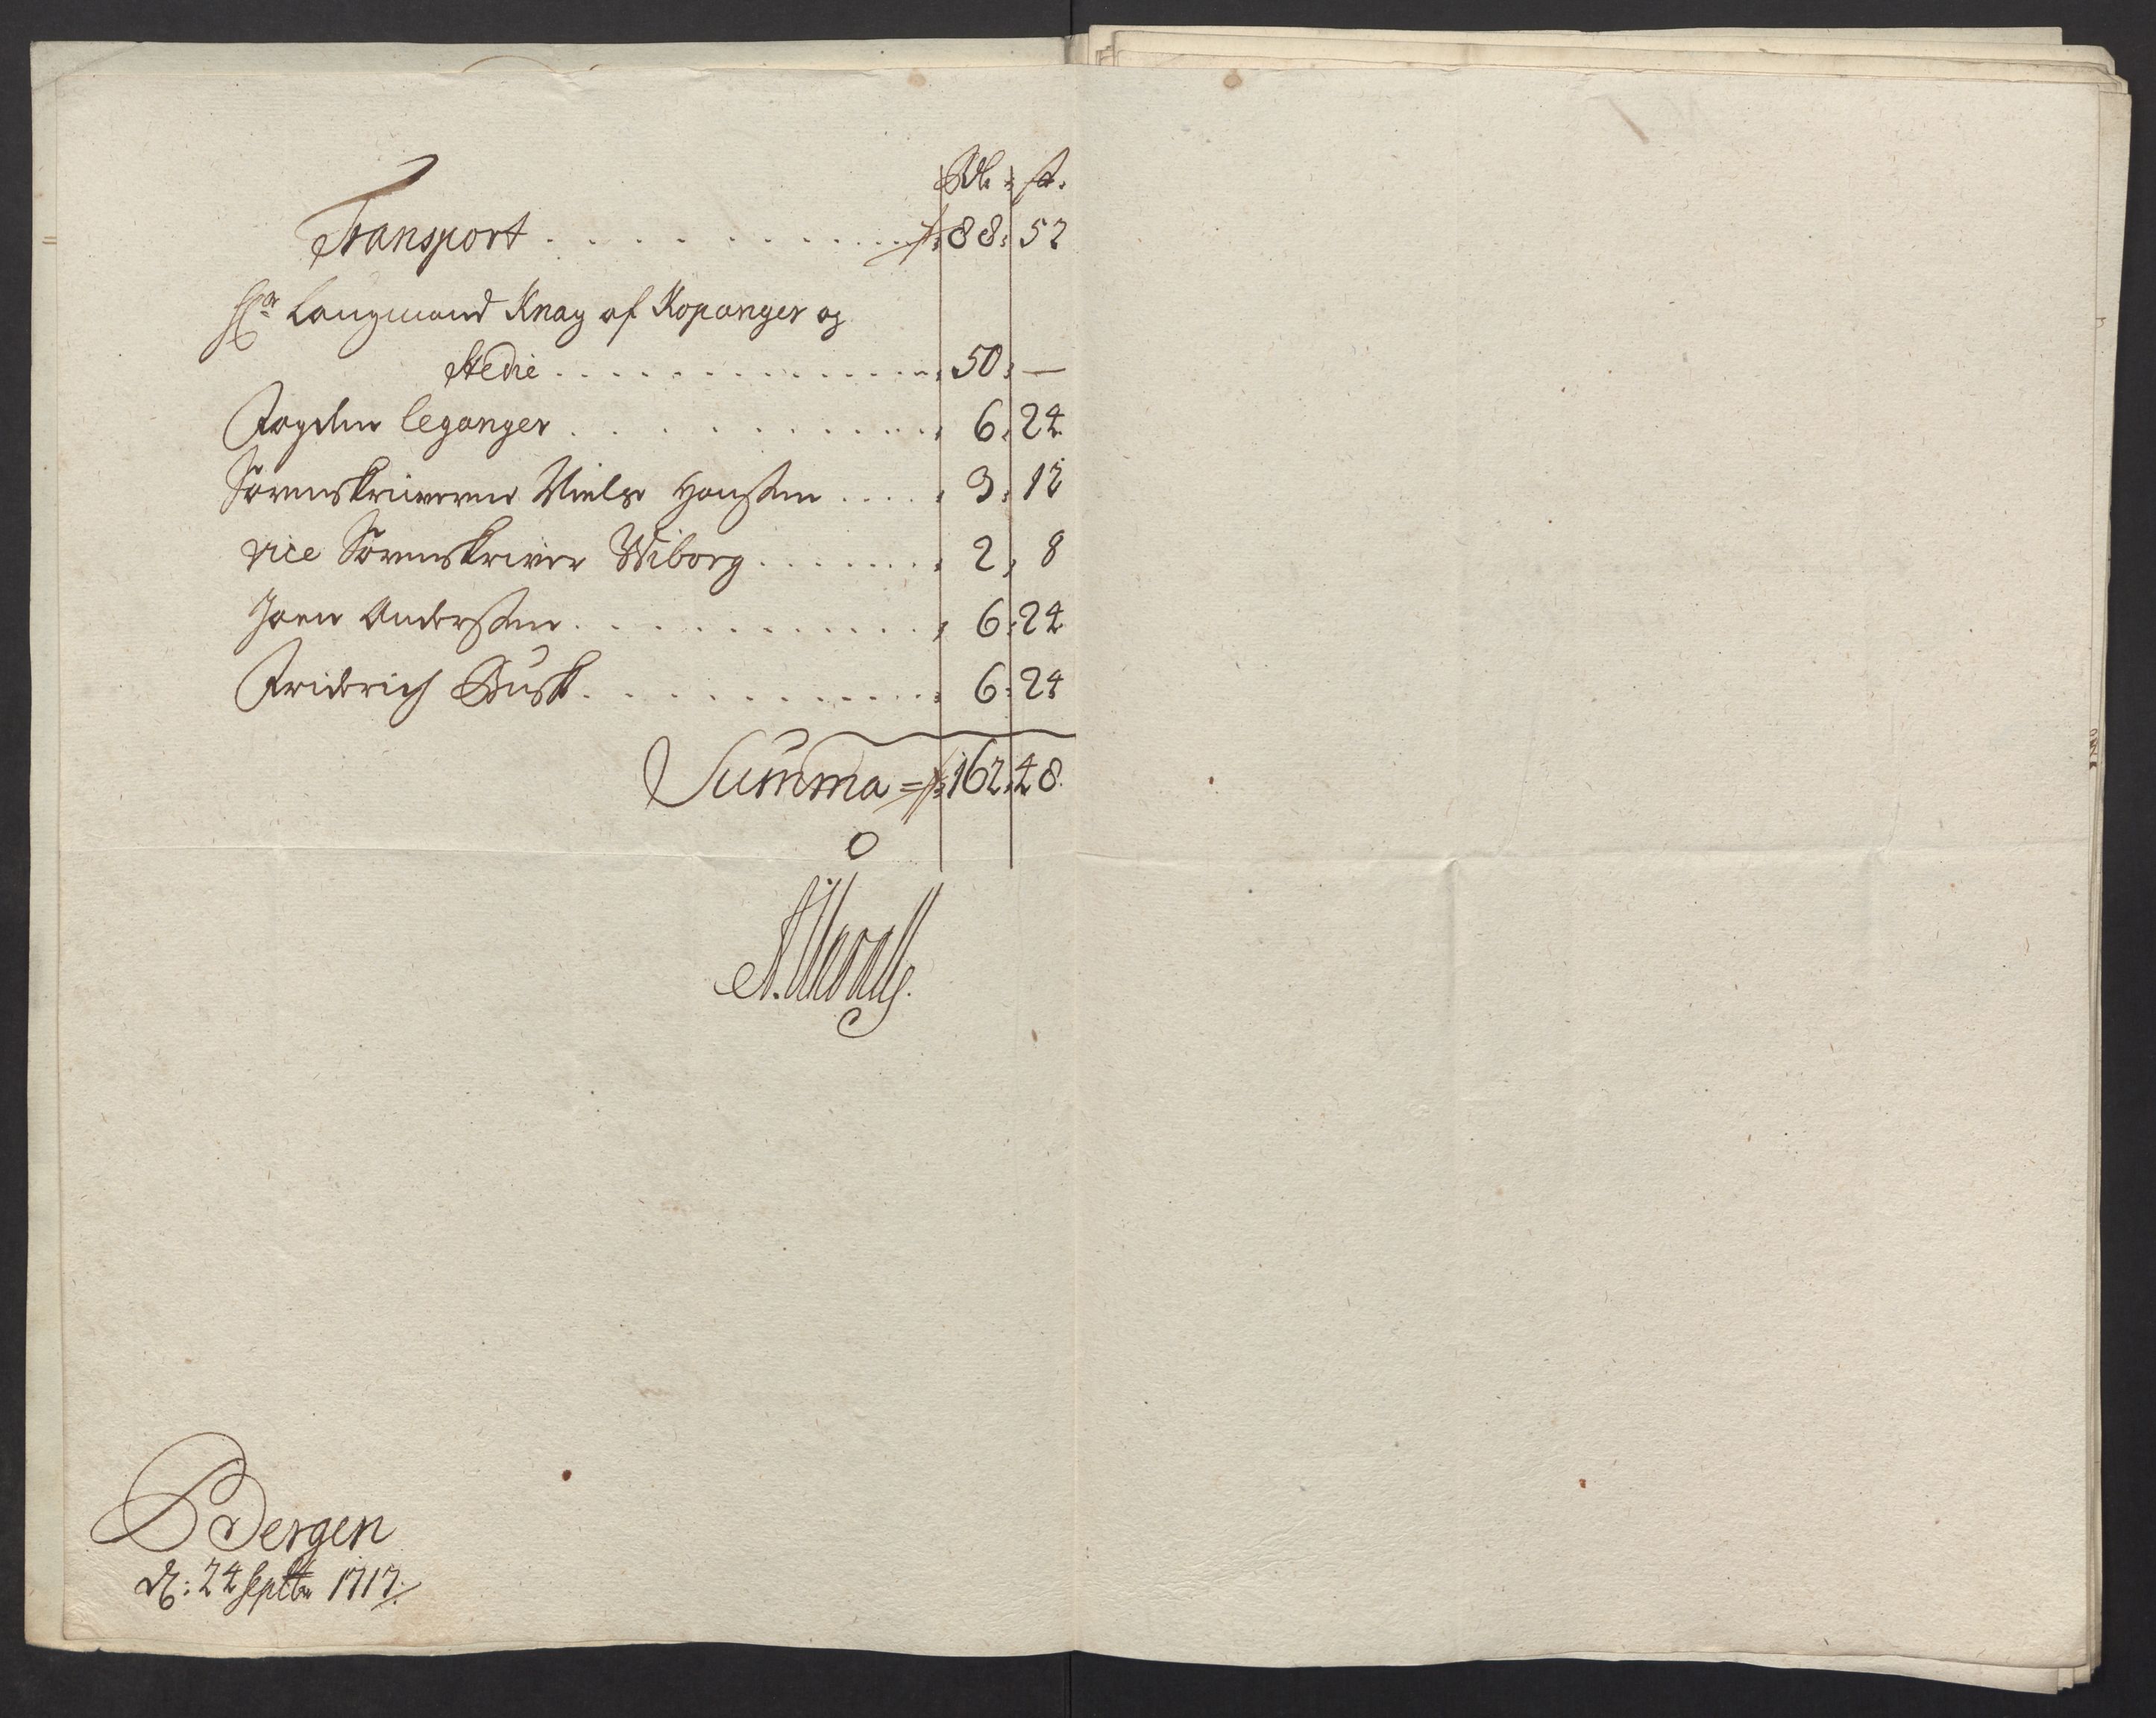 Rdr: s:
Transport . . . . . . . . . . . 88: 52
Hr Laugmand Knag af Kopanger og
Stedie . . . . . . . . . . . . . 50: —
Fogden Leganger . . . . . . . . . . . 6: 24
Sorenskriweren Nielss Hanssen . . . . 3: 12
vice Sorenskriwer Wiborg . . . . . . . 2: 8
Joen Anderssen . . . . . . . . . . . . 6: 24
Friderich Busk . . . . . . . . . . . . 6: 24
Summa = 162: 48.
Bergen
d: 24 Septbr 1717.